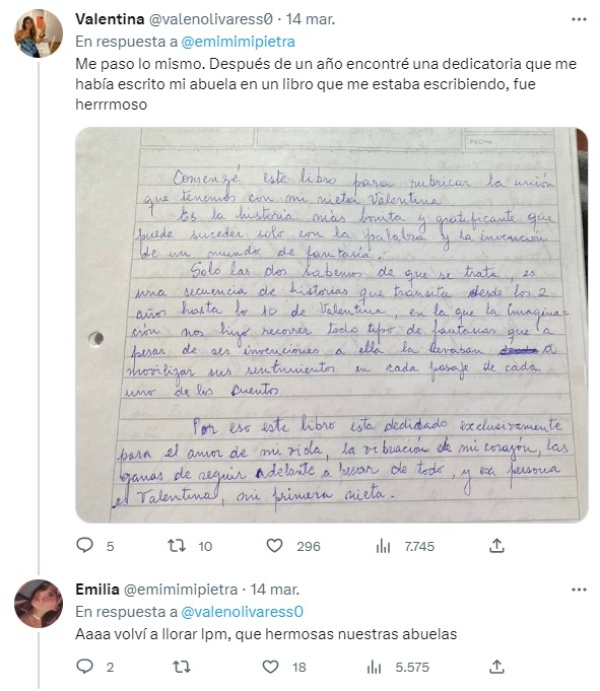 Valentina @valenolivaress0 · 14 mar.
En respuesta a @emimimipietra
Me paso lo mismo. Después de un año encontré una dedicatoria que me
había escrito mi abuela en un libro que me estaba escribiendo, fue
herrrmoso
FECHA
Comenzé este libro para rubricar la unión
que tenemos con mi nieta Valentina
Es la historia más bonita y gratificante que
puede suceder solo con la palabra y la invención
de un mundo de fantasía.
Solo las dos sabemos de que se trata, es
una secuencia de historias que transita desde los 2
años hasta lo 10 de Valentina, en la que la imagina-
ción nos hizo recorrer todo tipo de fantasias que a
pesar de ser invenciones a ella la llevaban a
movilizar sus sentimientos en cada pasaje de cada
uno de los cuentos
Por eso este libro esta dedicado exclusivamente
para el amor de mi vida, la vibración de mi corazón, las
ganas de seguir adelante a pesar de todo, y esa persona
es Valentina, mi primera nieta.
5 10 296 7.745
Emilia @emimimipietra · 14 mar.
En respuesta a @valenolivaress0
Aaaa volví a llorar lpm, que hermosas nuestras abuelas
2 18 5.575